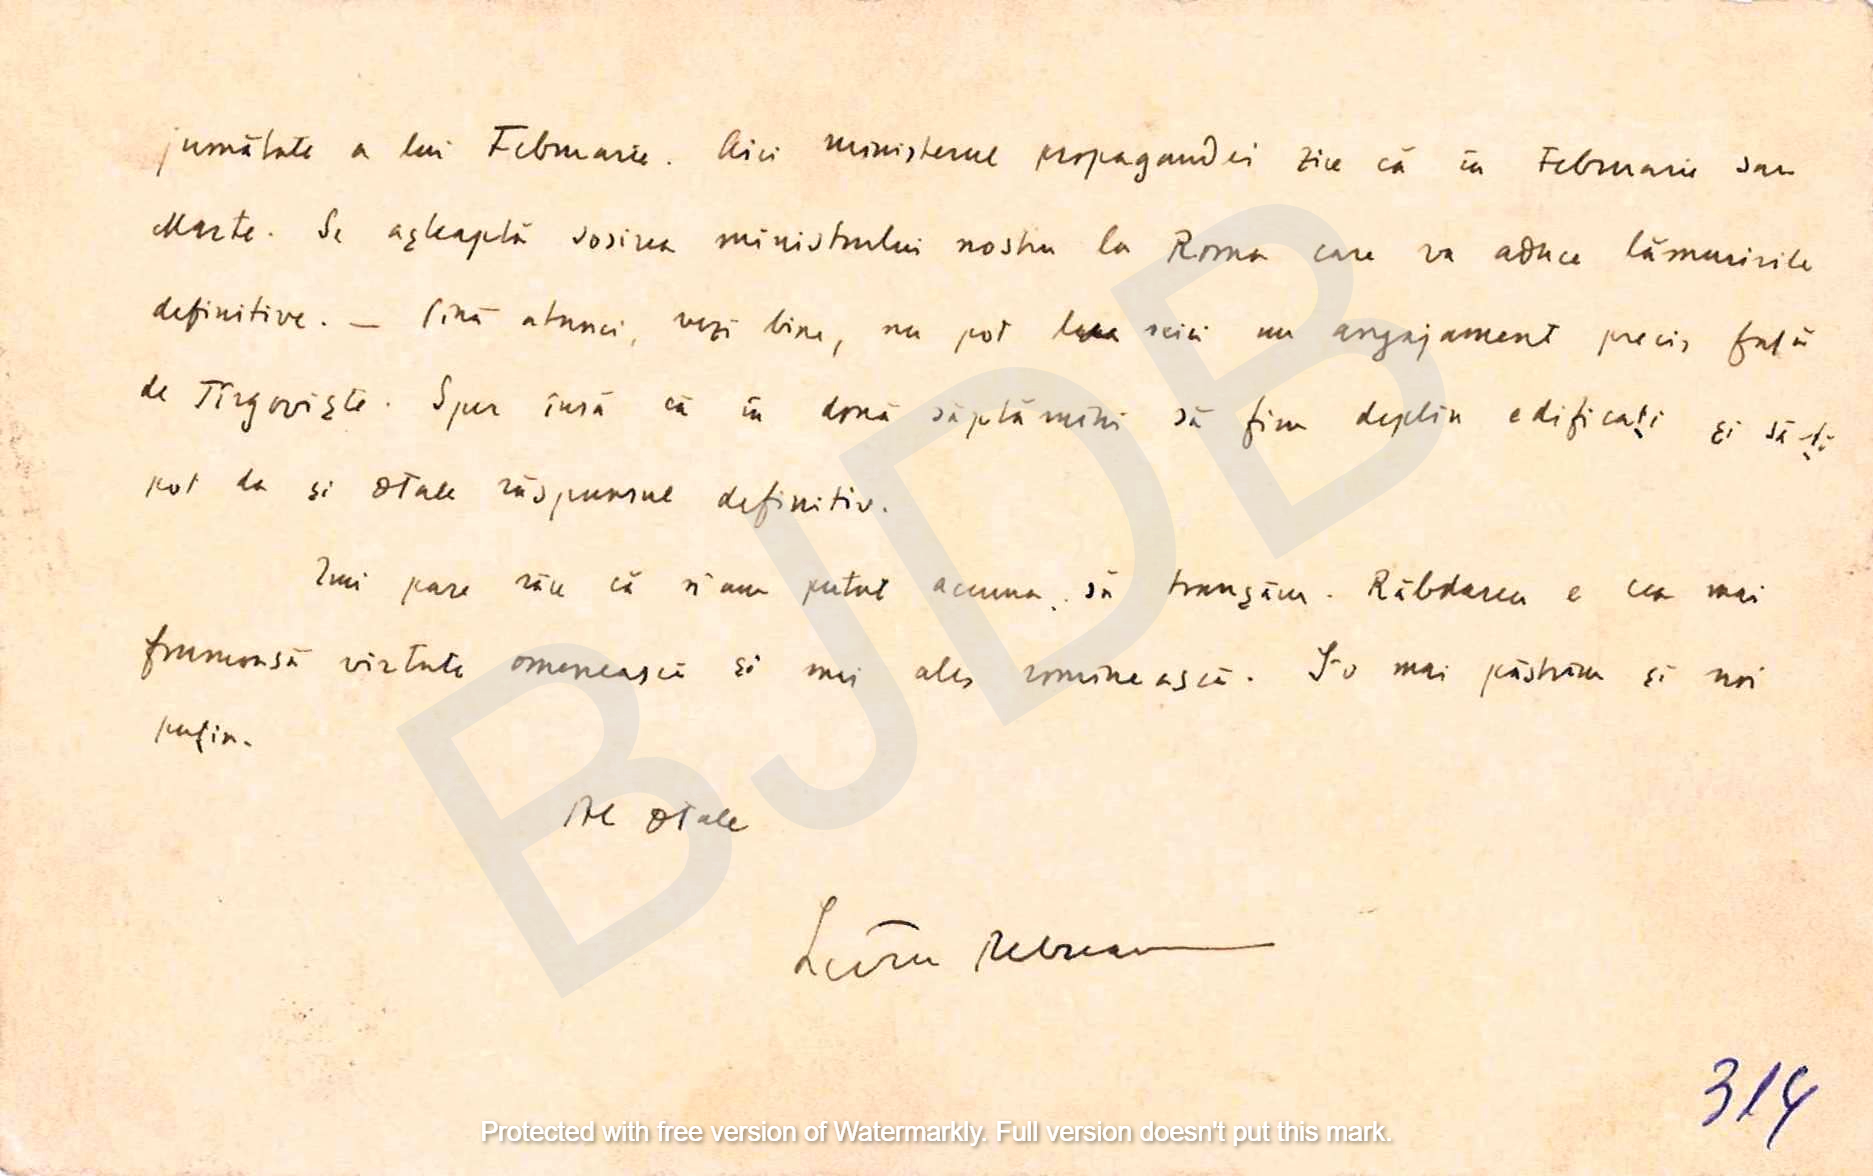 jumătate a lui Februarie. Aici ministerul propagandei zice că în Februarie sau
Marte. Se așteaptă sosirea ministrului nostru la Roma care va aduce lămuririle
definitive. — Pînă atunci, vezi bine, nu pot lua nici un angajament precis față
de Tîrgoviște. Sper însă că în două săptămîni să fim deplin edificați și să-ți
pot da și dtale răspunsul definitiv.
Îmi pare rău că n'am putut acuma să tranșăm. Răbdarea e cea mai
frumoasă virtute omenească și mai ales romînească. S'o mai păstrăm și noi
puțin.
Al dtale
Liviu Rebreanu
314
BJDB
Protected with free version of Watermarkly. Full version doesn't put this mark.